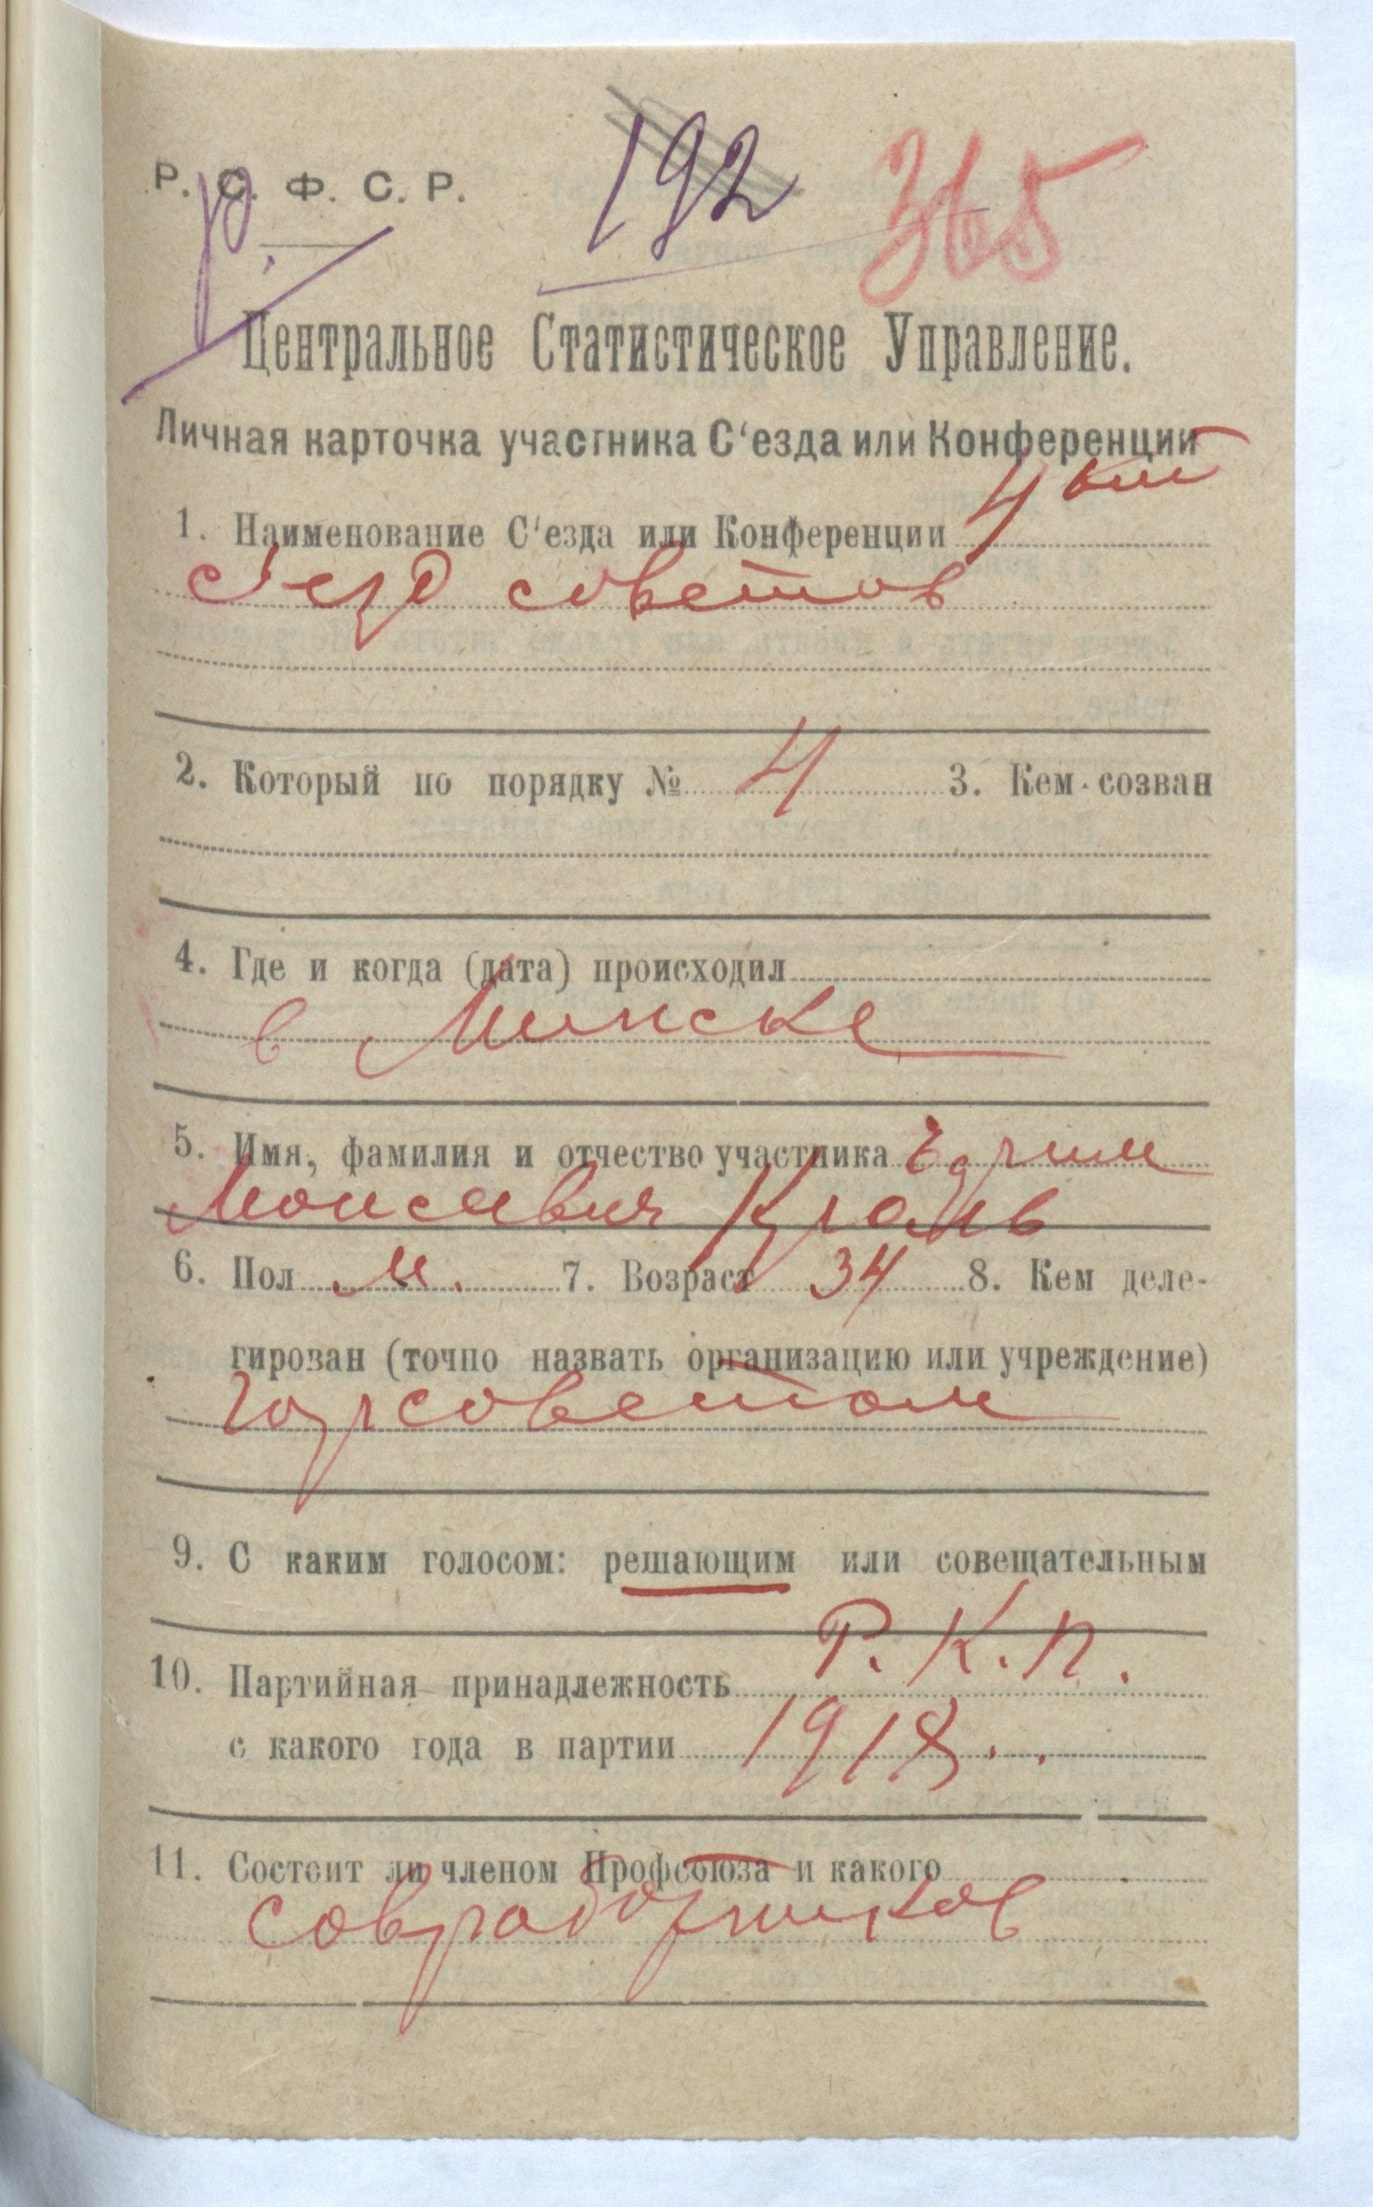 Р. С. Ф. С. Р.
192 365
Центральное Статистическое Управление.
Личная карточка участника С'езда или Конференции
1. Наименование С'езда или Конференции 4 ый
с'езд советов
2. Который по порядку № 4 3. Кем созван
4. Где и когда (дата) происходил
в Минске
5. Имя, фамилия и отчество участника
Моисеевич
6. Пол м. 7. Возраст 34 8. Кем деле-
гирован (точно назвать организацию или учреждение)
горсоветом
9. С каким голосом: решающим или совещательным
10. Партийная принадлежность Р. К. П.
с какого года в партии 1918..
11. Состоит ли членом Профсоюза и какого
совработников